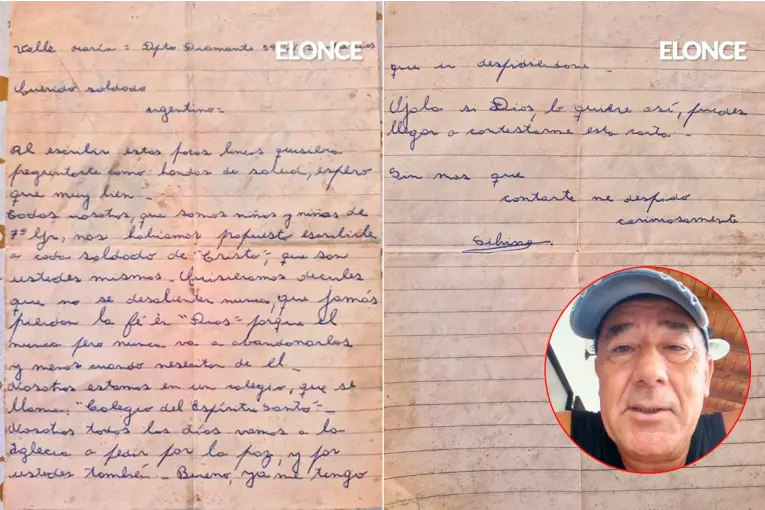 ELONCE
Valle María = Dpto Diamante
Querido soldado
argentino =
Al escribir estas pocas lineas quisiera
preguntarte como handas de salud, espero
que muy bien —
Todos nosotros, que somos niños y niñas de
7º Gr, nos habiamos propuesto escribirle
a cada soldado de "Cristo", que son
ustedes mismos. Quisieramos decirles
que no se desalienten nunca, que jamás
pierdan la fé en "Dios" porque el
nunca pero nunca va a abandonarlos
y menos cuando nesesiten de El —
Nosotros estamos en un colegio, que se
llama, "Colegio del Espíritu Santo" —
Nosotros todos los días vamos a la
Iglecia a pedir por la paz, y por
ustedes también — Bueno, ya me tengo
ELONCE
que ir despidiendome —
Ojala si Dios, lo quiere así, puedas
llegar a contestarme esta carta —
Sin mas que
contarte me despido
carinosamente